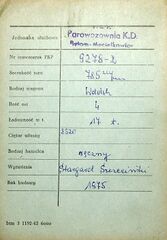 Jednostka służbowa
Parowozownia K.D.
Nr inwentarzowy PKP 9278-2
Szerokość toru 785 mm
Rodzaj wagonu Wddxh
Ilość osi 4
Ładowność w t. 17 t.
Ciężar własny
Rodzaj hamulca ręczny
Wytwórnia Stargard Szczeciński
Rok budowy 1975